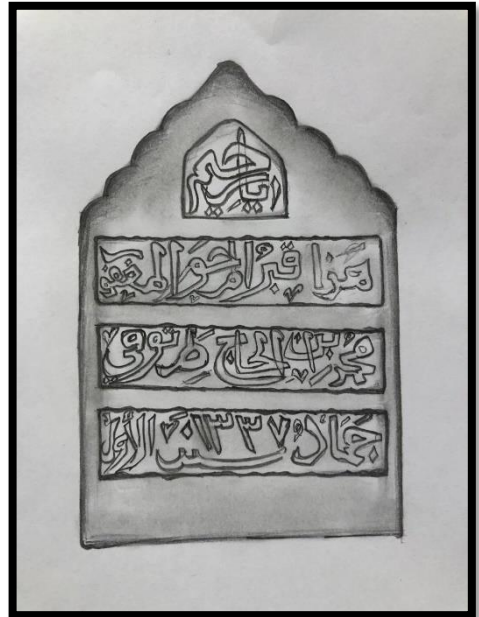 يا رحيم
هذا قبر المرحوم المغفور
محمد بن الحاج
جماد الاول سنة ١٣٣٧